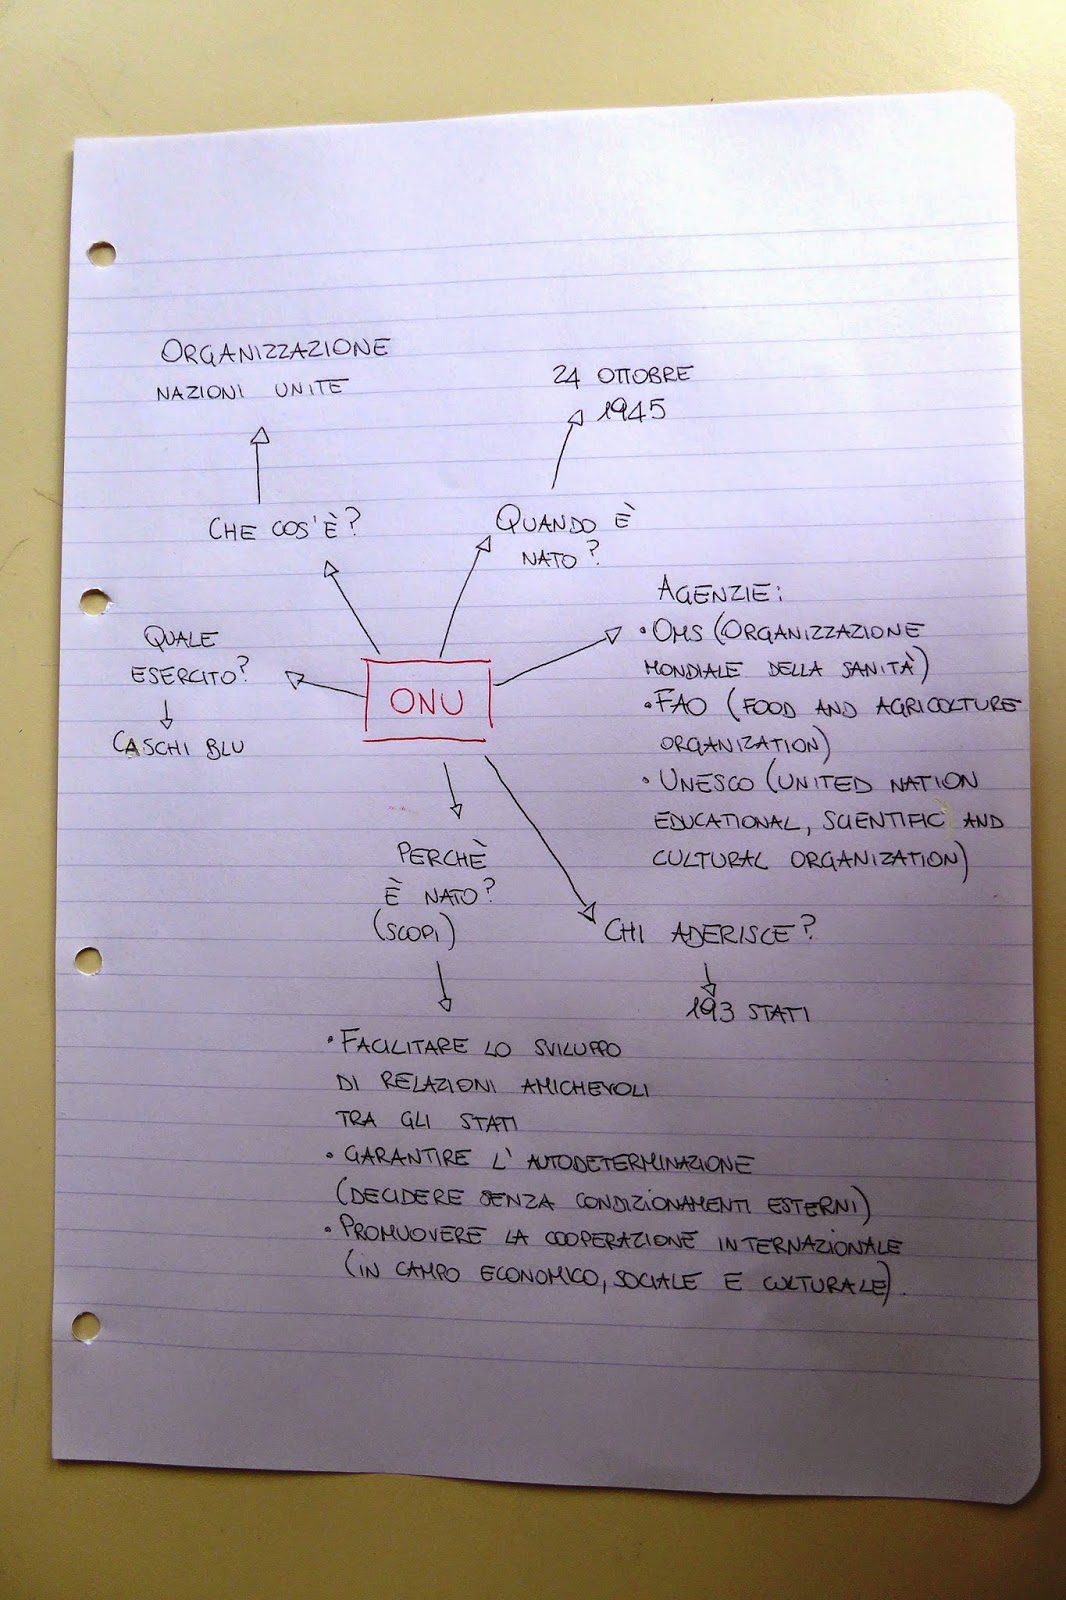 ORGANIZZAZIONE
NAZIONI UNITE
24 OTTOBRE
1945
CHE COS'È?
QUANDO È
NATO?
QUALE
ESERCITO?
CASCHI BLU
ONU
AGENZIE:
• OMS (ORGANIZZAZIONE
MONDIALE DELLA SANITÀ)
• FAO (FOOD AND AGRICOLTURE
ORGANIZATION)
• UNESCO (UNITED NATION
EDUCATIONAL, SCIENTIFIC AND
CULTURAL ORGANIZATION)
PERCHÈ
È NATO?
(SCOPI)
CHI ADERISCE?
193 STATI
• FACILITARE LO SVILUPPO
DI RELAZIONI AMICHEVOLI
TRA GLI STATI
• GARANTIRE L'AUTODETERMINAZIONE
(DECIDERE SENZA CONDIZIONAMENTI ESTERNI)
• PROMUOVERE LA COOPERAZIONE INTERNAZIONALE
(IN CAMPO ECONOMICO, SOCIALE E CULTURALE).